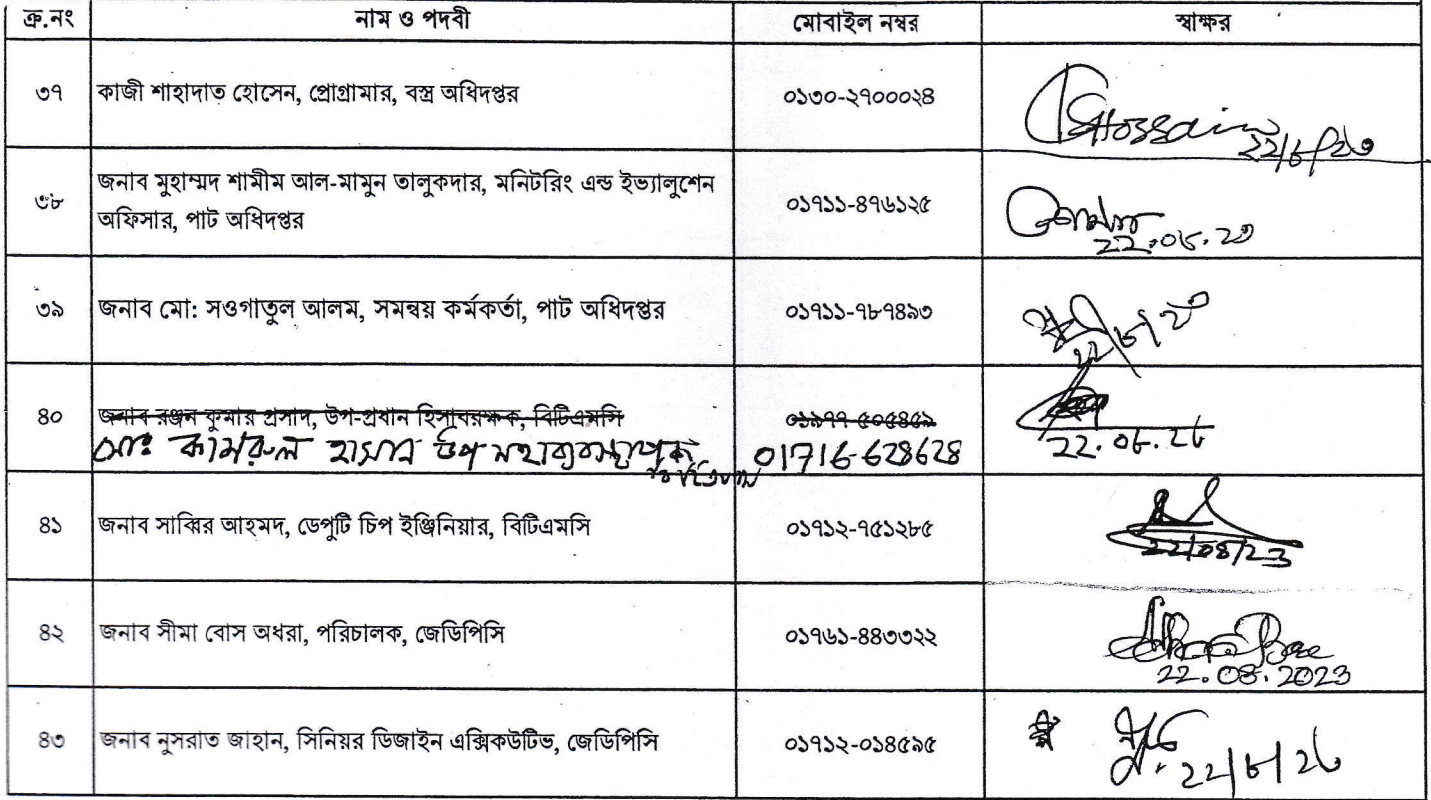 ক্র.নং নাম ও পদবী মোবাইল নম্বর স্বাক্ষর
৩৭ কাজী শাহাদাত হোসেন, প্রোগ্রামার, বস্ত্র অধিদপ্তর ০১৩০-২৭০০০২৪ Hossain
২২/৮/২৩
৩৮ জনাব মুহাম্মদ শামীম আল-মামুন তালুকদার, মনিটরিং এন্ড ইভ্যালুশেন
অফিসার, পাট অধিদপ্তর ০১৭১১-৪৭৬১২৫
22.০৮.২৩
৩৯ জনাব মো: সওগাতুল আলম, সমন্বয় কর্মকর্তা, পাট অধিদপ্তর ০১৭১১-৭৮৭৪৯৩
৪০ জনাব রঞ্জন কুমার প্রসাদ, উপ-প্রধান হিসাবরক্ষক, বিটিএমসি ০১৯৭৭-৫০৫৪৫৯
মোঃ কামরুল হাসান উপ মহাব্যবস্থাপক 01716-628628
৪১ জনাব সাব্বির আহমদ, ডেপুটি চিপ ইঞ্জিনিয়ার, বিটিএমসি ০১৭১২-৭৫১২৮৫
22/08/23
৪২ জনাব সীমা বোস অধরা, পরিচালক, জেডিপিসি ০১৭৬১-৪৪৩৩২২
22.08.2023
৪৩ জনাব নুসরাত জাহান, সিনিয়র ডিজাইন এক্সিকউটিভ, জেডিপিসি ০১৭১২-০১৪৫৯৫